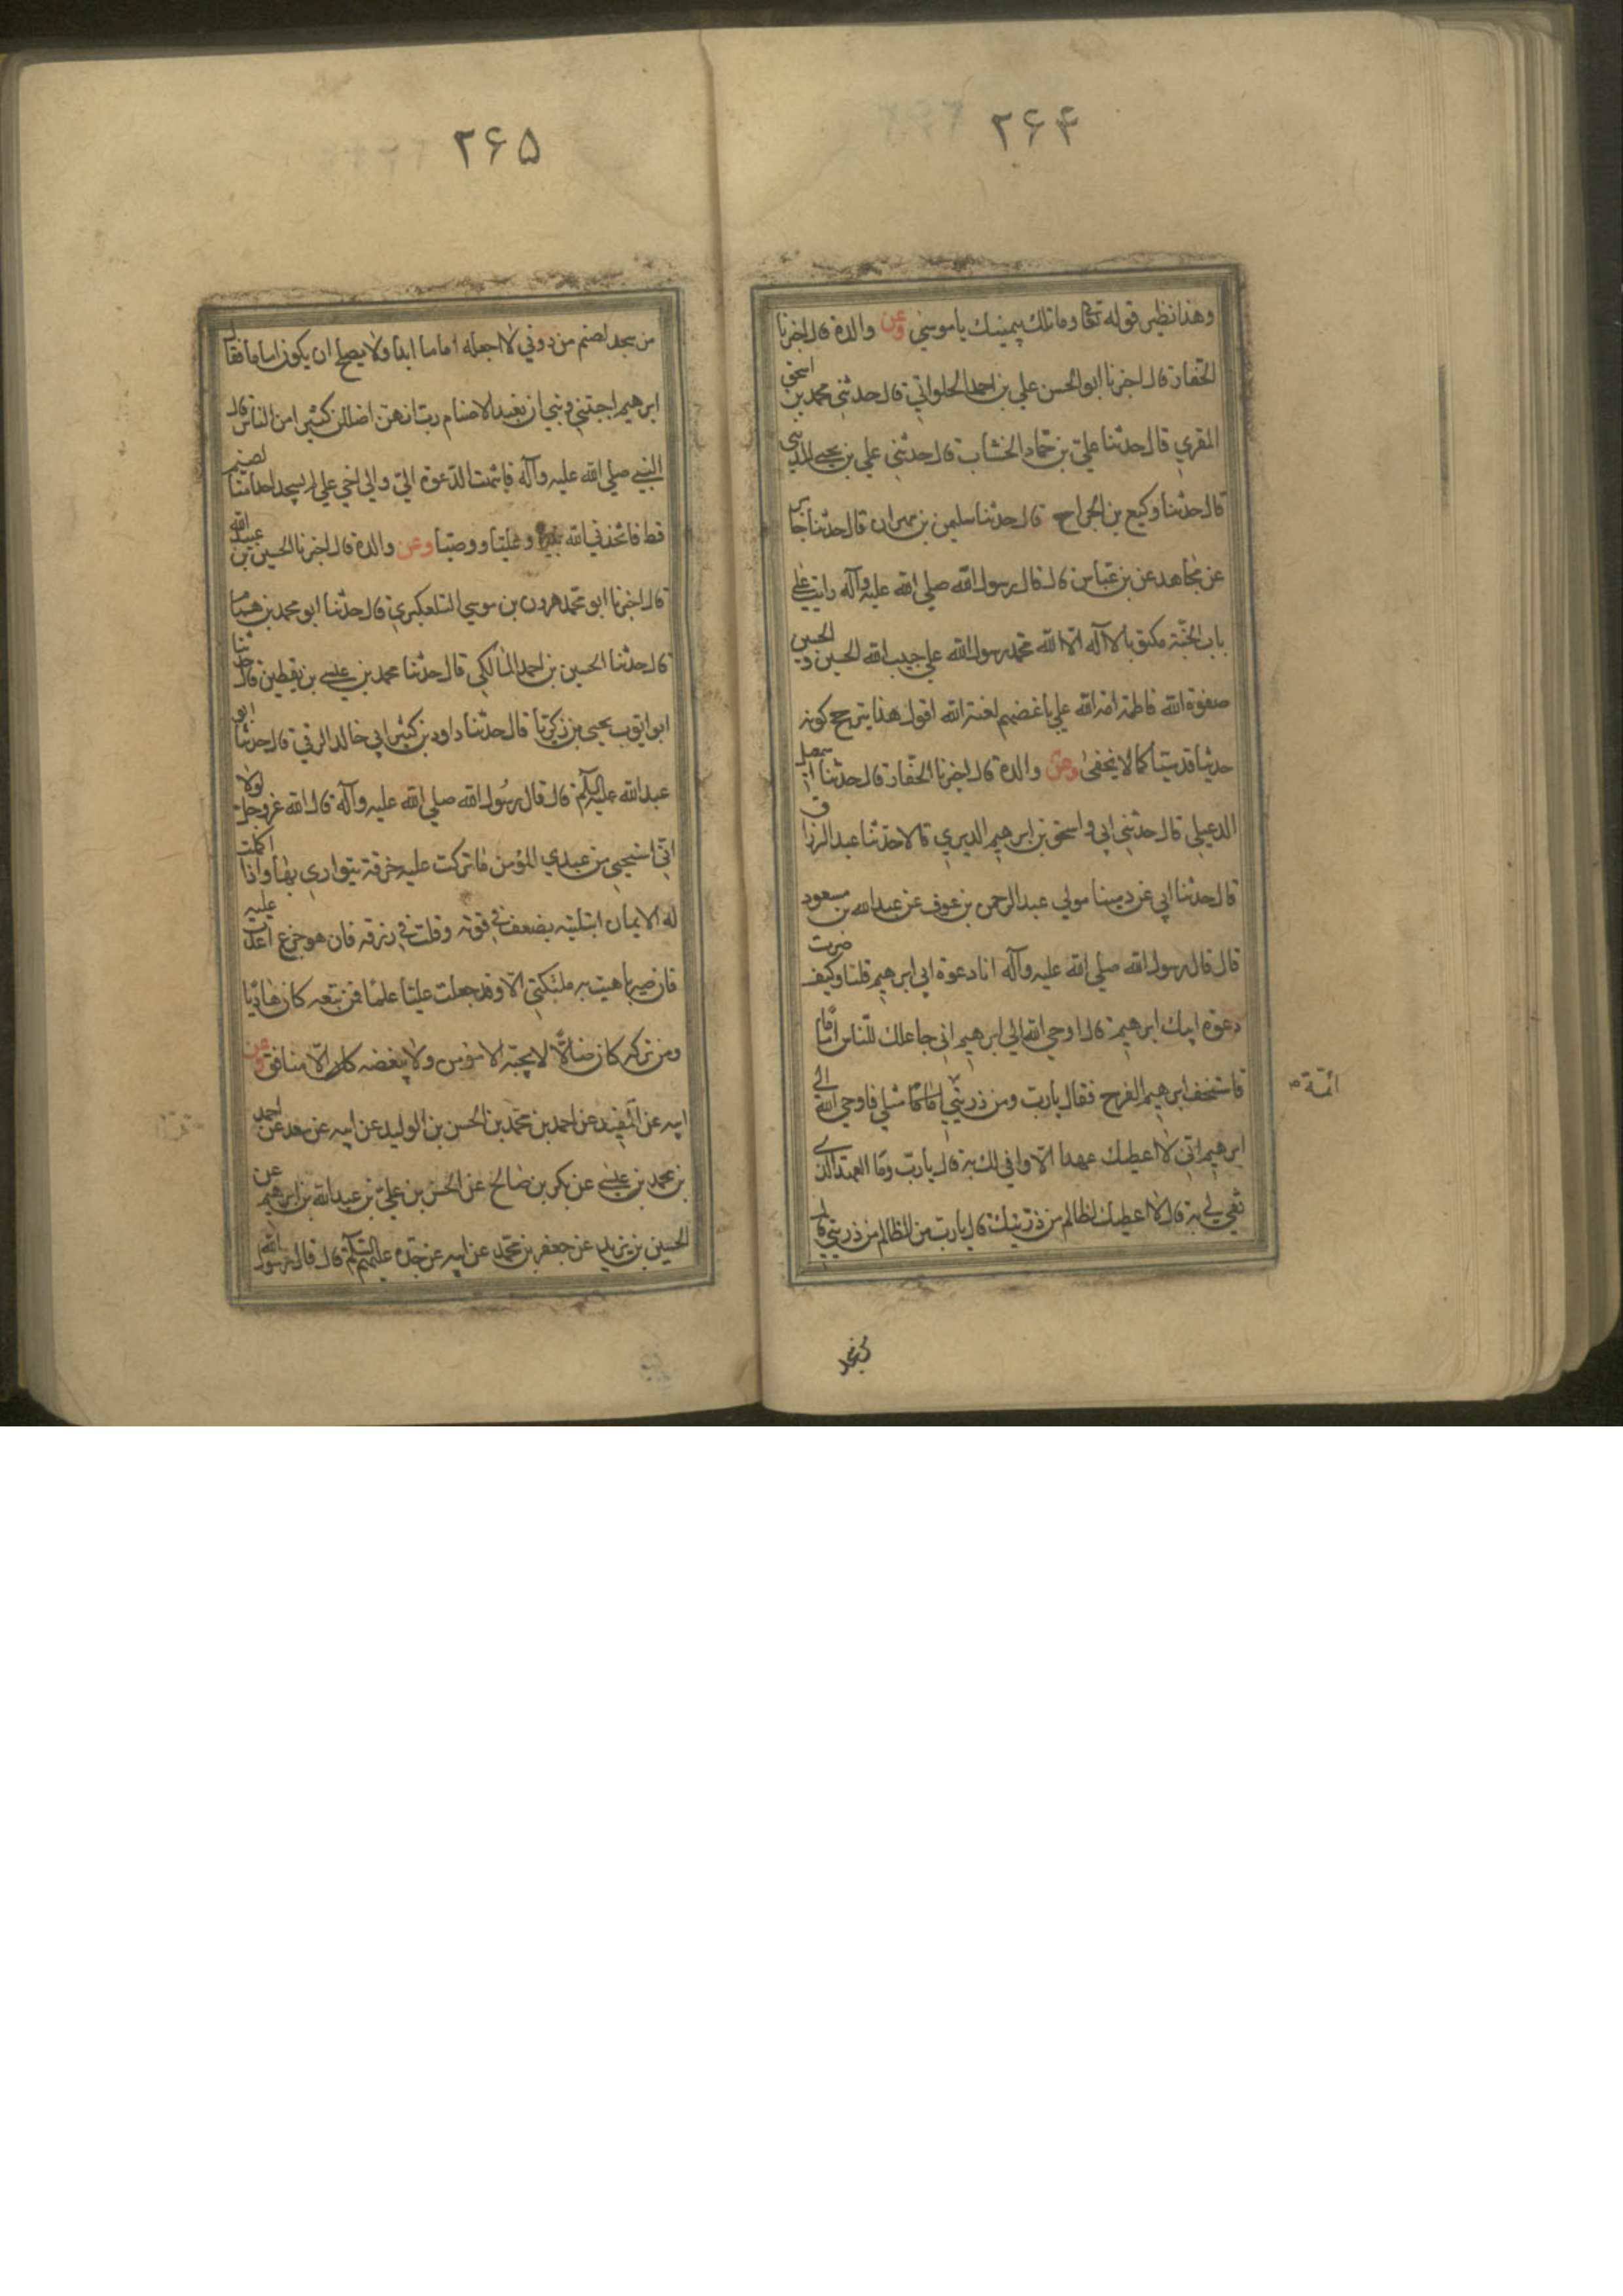 ۲۶۴
وهذا نظير قوله تعالى وما تلك بيمينك يا موسى وعن والده قال اخبرنا
الحفار قال اخبرنا ابو الحسن علي بن احمد الحلواني قال حدثني محمد بن اسحق
المقري قال حدثنا علي بن حماد الخشاب قال حدثني علي بن
قال حدثنا وكيع بن الجراح قال حدثنا سليمن بن مهران قال حدثنا جابر
عن مجاهد عن بن عباس قال قال رسول الله صلى الله عليه وآله رايت على
باب الجنة مكتوبا لا آله الا الله محمد رسول الله علي حبيب الله الحسين و الحسن
صفوة الله فاطمة امة الله علي باغضهم لعنة الله اقول هذا يترجح كونه
حديثا قدسيا كما لا يخفى وعن والده قال اخبرنا الحفار قال حدثنا اسمعيل
الدعبلي قال حدثني ابي و اسحق بن ابرهيم الديري قالا حدثنا عبد الرزاق
قال حدثنا ابي عن مينا مولى عبد الرحمن بن عوف عن عبد الله بن مسعود
قال قال رسول الله صلى الله عليه وآله انا دعوة ابي ابرهيم قلنا وكيف صرت
دعوة ابيك ابرهيم قال اوحى الله الى ابرهيم اني جاعلك للناس اماما
فاستخف ابرهيم الفرح فقال يا رب ومن ذريتي اماما مثلي فاوحى الله الى
ائمة
ابرهيم اني لا اعطيك عهدا الا وافي لك به قال يا رب وما العهد الذي
تفي لي به قال لا اعطيك لظالم من ذريتك قال يا رب من الظالم من ذريتي قال
۲۶۵
من سجد لصنم من دوني لا اجعله اماما ابدا ولا يصلح ان يكون اماما فقال
ابرهيم اجنبني وبني ان نعبد الاصنام رب انهن اضللن كثيرا من الناس قال
النبي صلى الله عليه وآله فانتهت الدعوة الي والى اخي علي لم يسجد احدنا لصنم
قط فاتخذني الله نبيا و عليا ووصيا وعن والده قال اخبرنا الحسين بن عبيد الله
قال اخبرنا ابو محمد هرون بن موسى التلعكبري قال حدثنا ابو محمد بن همام
قال حدثنا الحسين بن احمد المالكي قال حدثنا محمد بن عيسى بن يقطين قال حدثنا
ابو ايوب يحيى بن زكريا قال حدثنا داود بن كثير ابي خالد الرقي قال حدثنا ابو
عبد الله عليه السلام قال قال رسول الله صلى الله عليه وآله قال الله عز وجل لولا
اني استحيي من عبدي المؤمن ما تركت عليه خرقة يتوارى بها واذا اكملت
له الايمان ابتليته بضعف في قوته وقلت في رزقه فان هو جزع اعدت عليه
فان صبر باهيت به ملئكتي الا وقد جعلت عليا علما فمن تبعه كان هاديا
ومن تركه كان ضالا لا يحبه الا مؤمن ولا يبغضه كان الا منافق وعن
ابيه عن المفيد عن احمد بن محمد بن الحسن بن الوليد عن ابيه عن سعد عن احمد
بن محمد بن عيسى عن بكر بن صالح عن الحسن بن علي بن عبد الله بن ابرهيم عن
الحسين بن زيد عن جعفر بن محمد عن ابيه عن جده عليهم السلام قال قال رسول الله